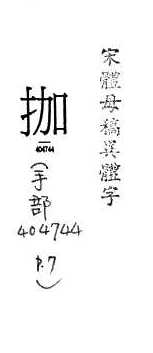 宋體母稿異體字
拁
404744
(手部
404744
P.7)